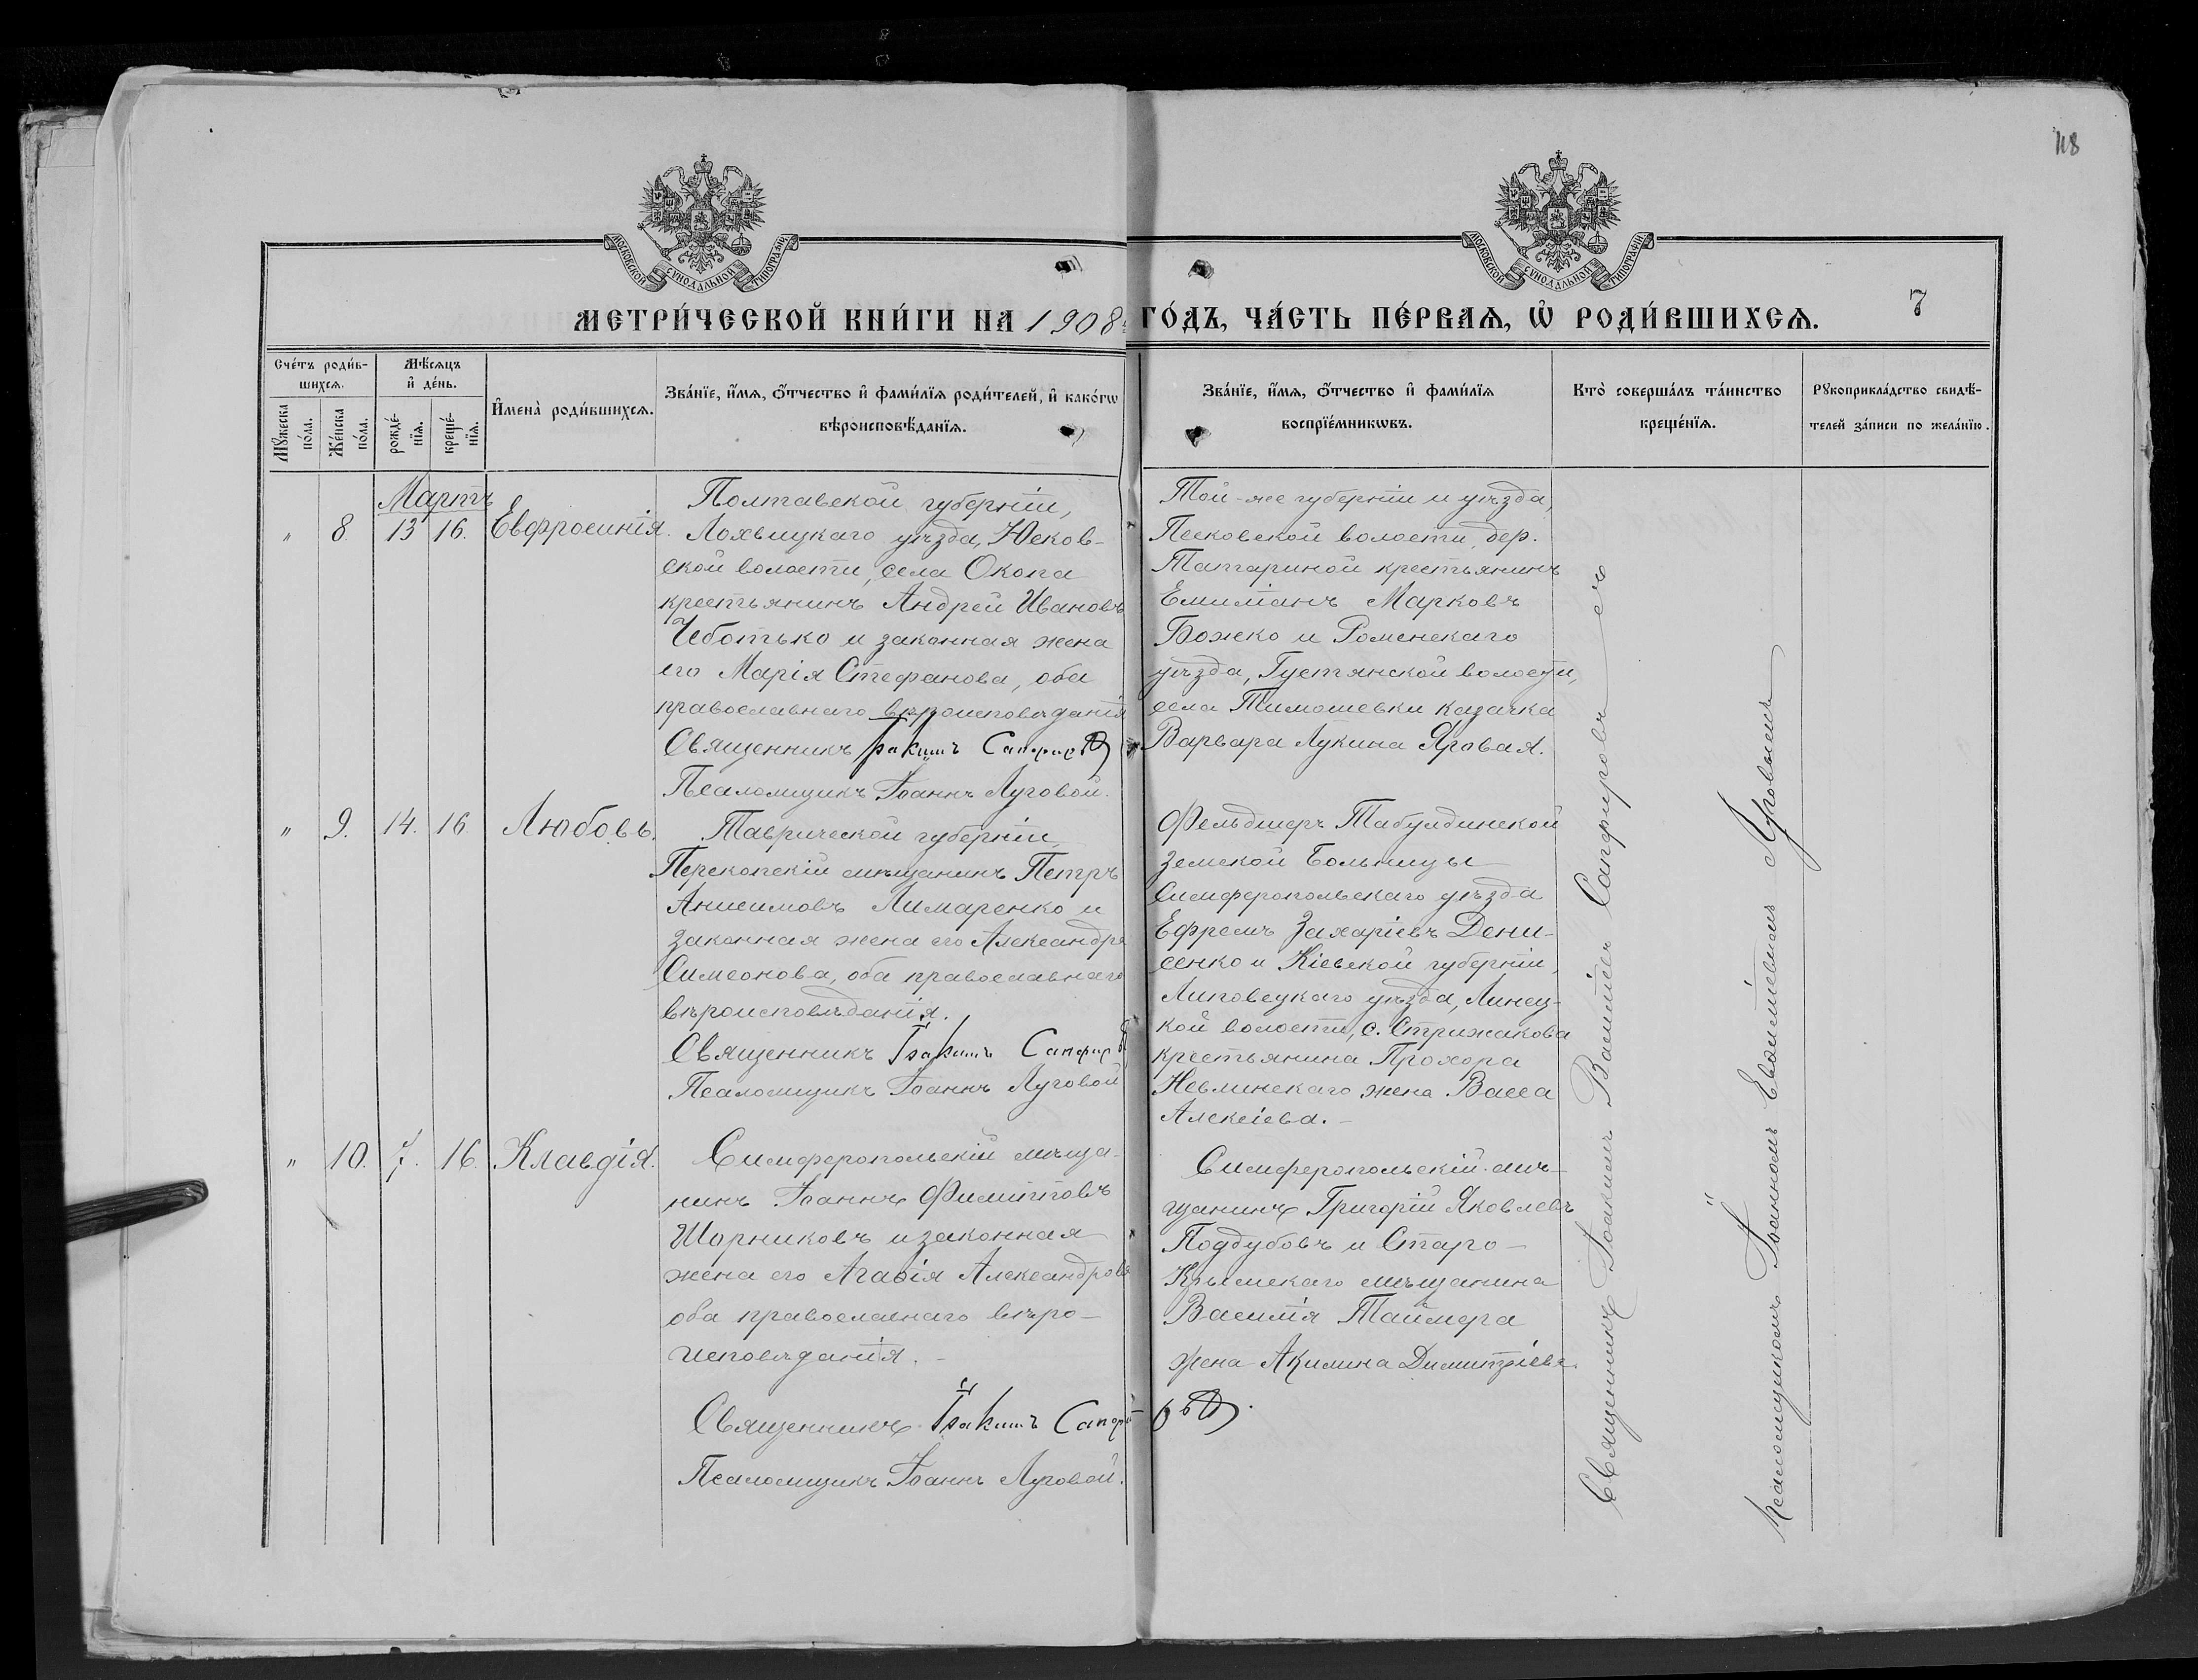 118
МОСКОВСКОЙ СУНОДАЛЬНОЙ ТИПОГРАФІИ.
МОСКОВСКОЙ СУНОДАЛЬНОЙ ТИПОГРАФІИ.
МЕТРИ́ЧЕСКОЙ КНИ́ГИ НА 1908 ГО́ДЪ, ЧА́СТЬ ПЕ́РВАѦ, Ѡ҆ РОДИ́ВШИХСѦ.
7
Сче́тъ роди́в-
шихсѧ.
Мꙋ́жеска
по́ла.
Же́нска
по́ла.
Мѣ́сѧцъ
и҆ де́нь.
рожде́-
нїѧ.
креще́-
нїѧ.
И҆мена̀ роди́вшихсѧ.
Зва́нїе, и҆́мѧ, ѻ҆́тчество и҆ фами́лїѧ роди́телей, и҆ како́гѡ
вѣроисповѣ́данїѧ.
Зва́нїе, и҆́мѧ, ѻ҆́тчество и҆ фами́лїѧ
воспрїе́мникѡвъ.
Кто̀ соверша́лъ та́инство
креще́нїѧ.
Рꙋкоприкла́дство свидѣ́-
телей за́писи по жела́нїю.
Мартъ
" 8. 13 16. Евфросинія.
Полтавской губерніи,
Лохвицкаго уѣзда, Юсков-
ской волости, села Окопа
крестьянинъ Андрей Ивановъ
Чеботько и законная жена
его Марія Стефанова, оба
православнаго вѣроисповѣданія
Священникъ Іоакимъ Сапфировъ
Псаломщикъ Іоаннъ Луговой.
Той-же губерніи и уѣзда,
Песковской волости, дер.
Татариной крестьянинъ
Емиліанъ Марковъ
Божко и Роменскаго
уѣзда, Густянской волости,
села Тимошевки казачка
Варвара Лукина Яровая.
" 9. 14. 16 Любовь.
Таврической губерніи,
Перекопскій мѣщанинъ Петръ
Анисимовъ Лимаренко и
законная жена его Александра
Симеонова, оба православнаго
вѣроисповѣданія.
Священникъ Іоакимъ Сапфировъ
Псаломщикъ Іоаннъ Луговой
Фельдшеръ Табулдинской
Земской Больницы
Симферопольскаго уѣзда
Ефремъ Захаріевъ Дени-
сенко и Кіевской губерніи,
Липовецкаго уѣзда, Линец-
кой волости, с. Стрижакова
крестьянина Прохора
Невлинскаго жена Васса
Алексіева. -
" 10. 7. 16. Клавдія.
Симферопольскій мѣща-
нинъ Іоаннъ Филипповъ
Шорниковъ и законная
жена его Агаѳія Александрова
оба православнаго вѣро-
исповѣданія. -
Священникъ Іоакимъ Сапфировъ.
Псаломщикъ Іоаннъ Луговой.
Симферопольскій мѣ-
щанинъ Григорій Яковлевъ
Поддубовъ и Старо-
Крымскаго мѣщанина
Василія Таймера
жена Акилина Димитріева.
Священникъ Іоакимъ Василіевъ Сапфировъ съ
Псаломщикомъ Іоанномъ Евѳиміевымъ Луговымъ